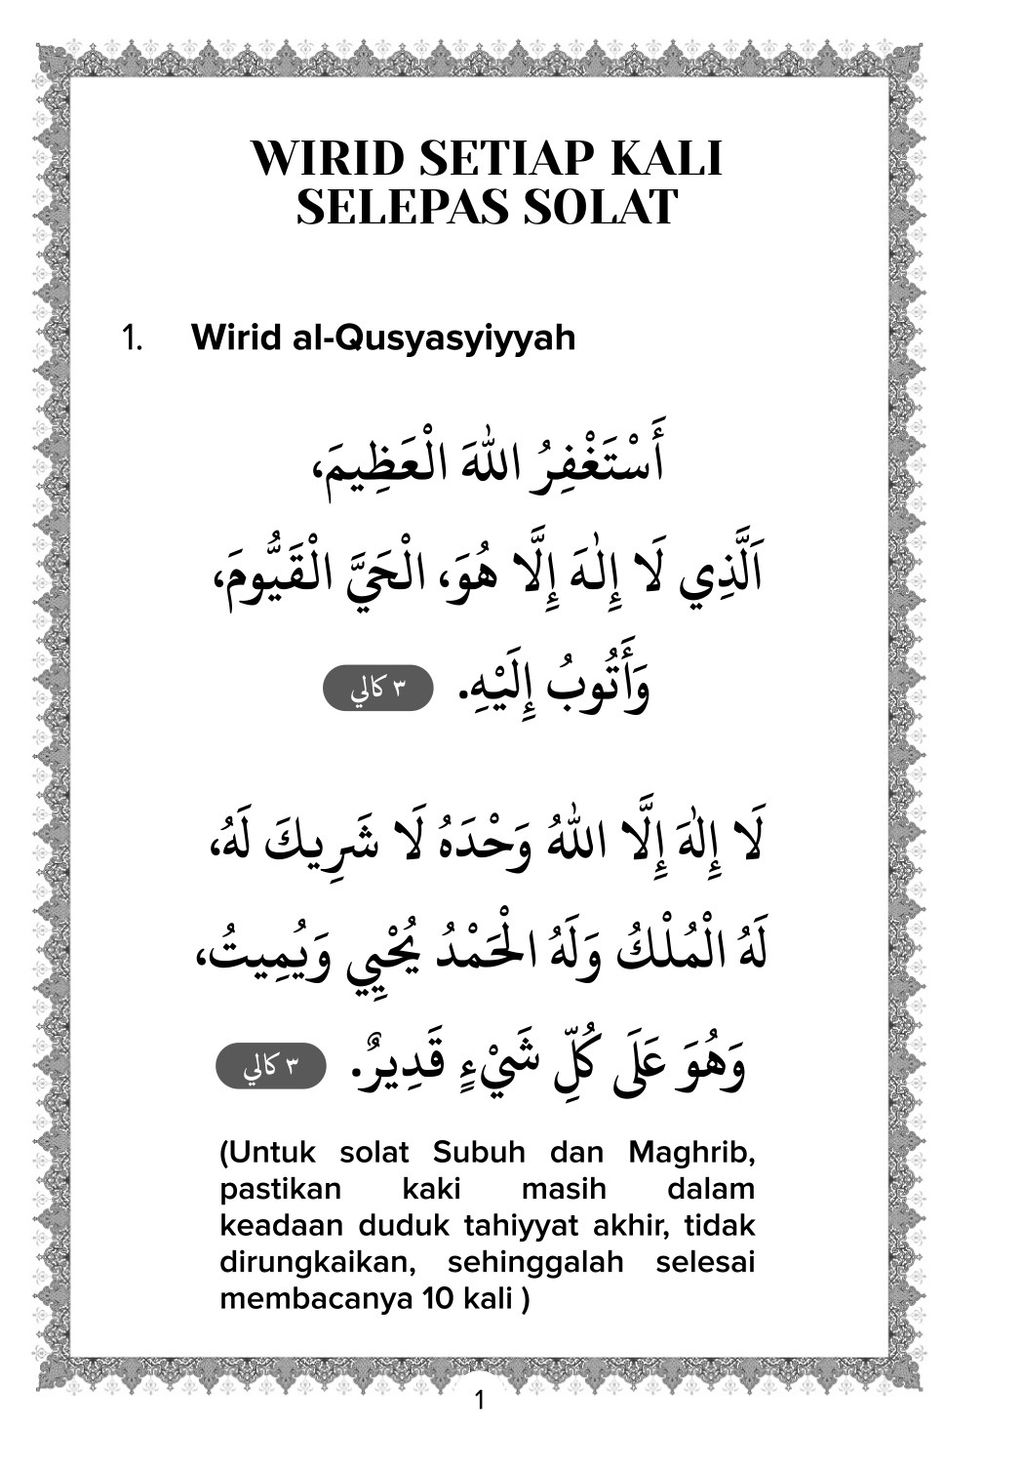 WIRID SETIAP KALI
SELEPAS SOLAT
1. Wirid al-Qusyasyiyyah
أَسْتَغْفِرُ اللهَ الْعَظِيمَ،
اَلَّذِي لَا إِلٰهَ إِلَّا هُوَ، الْحَيَّ الْقَيُّومَ،
وَأَتُوبُ إِلَيْهِ. ٣ كالي
لَا إِلٰهَ إِلَّا اللهُ وَحْدَهُ لَا شَرِيكَ لَهُ،
لَهُ الْمُلْكُ وَلَهُ الْحَمْدُ يُحْيِي وَيُمِيتُ،
وَهُوَ عَلَى كُلِّ شَيْءٍ قَدِيرٌ. ٣ كالي
(Untuk solat Subuh dan Maghrib,
pastikan kaki masih dalam
keadaan duduk tahiyyat akhir, tidak
dirungkaikan, sehinggalah selesai
membacanya 10 kali )
1